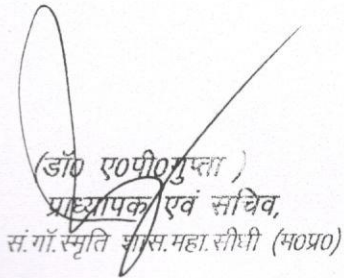 (डॉ0 ए0पी0गुप्ता )
प्राध्यापक एवं सचिव,
सं.गॉ.स्मृति शास.महा.सीधी (म0प्र0)